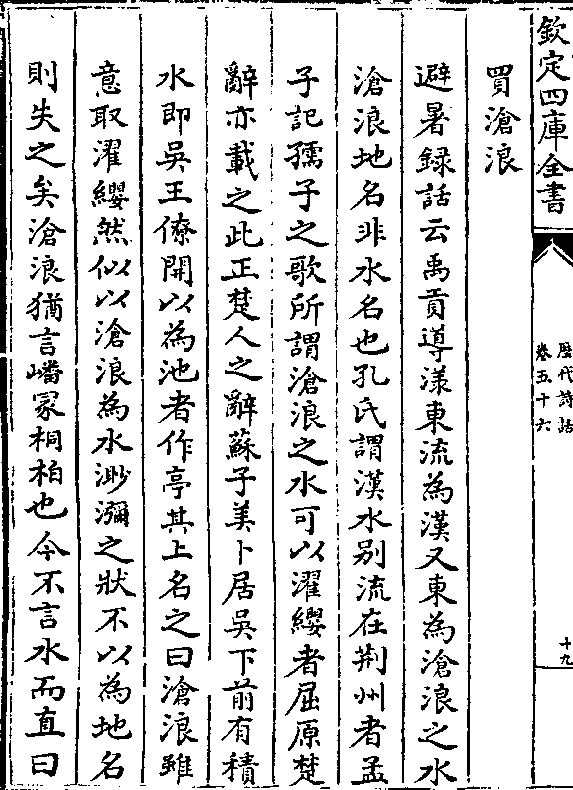 欽定四庫全書
歷代詩話
卷五十六
十九
買滄浪
避暑録話云禹貢導漾東流為漢又東為滄浪之水
滄浪地名非水名也孔氏謂漢水别流在荆州者孟
子記孺子之歌所謂滄浪之水可以濯纓者屈原楚
辭亦載之此正楚人之辭蘇子美卜居吳下前有積
水即吳王僚開以為池者作亭其上名之曰滄浪雖
意取濯纓然似以滄浪為水渺瀰之狀不以為地名
則失之矣滄浪猶言嶓冢桐柏也今不言水而直曰